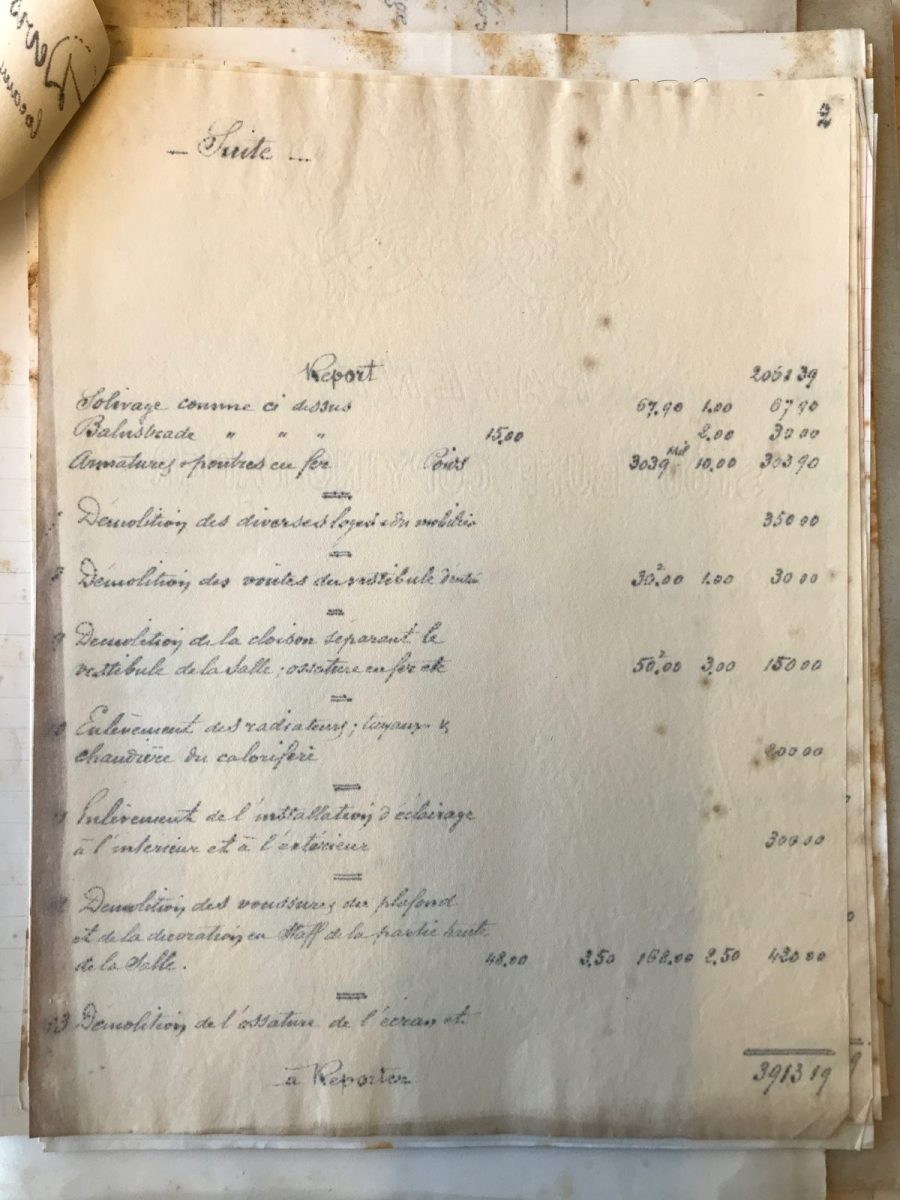 2
— Suite —
Report 2061 39
Solivage comme ci dessus 67.90 1.00 67 90
Balustrade " " " 15.00 2.00 30 00
Armatures & poutres en fer Poids 3039 10.00 303 90
Démolition des diverses loges & du mobilier 350 00
8 Démolition des voutes du vestibule d'entrée 30².00 1.00 30 00
9 Démolition de la cloison séparant le
vestibule de la Salle; ossature en fer etc 50².00 3.00 150 00
10 Enlèvement des radiateurs; tuyaux &
chaudière du calorifère 200 00
11 Enlèvement de l'installation d'éclairage
à l'intérieur et à l'extérieur 300 00
12 Démolition des voussures du plafond
et de la décoration en Staff de la partie haute
de la Salle. 48.00 3.50 168.00 2.50 420 00
13 Démolition de l'ossature de l'écran et
à Reporter 3913 19